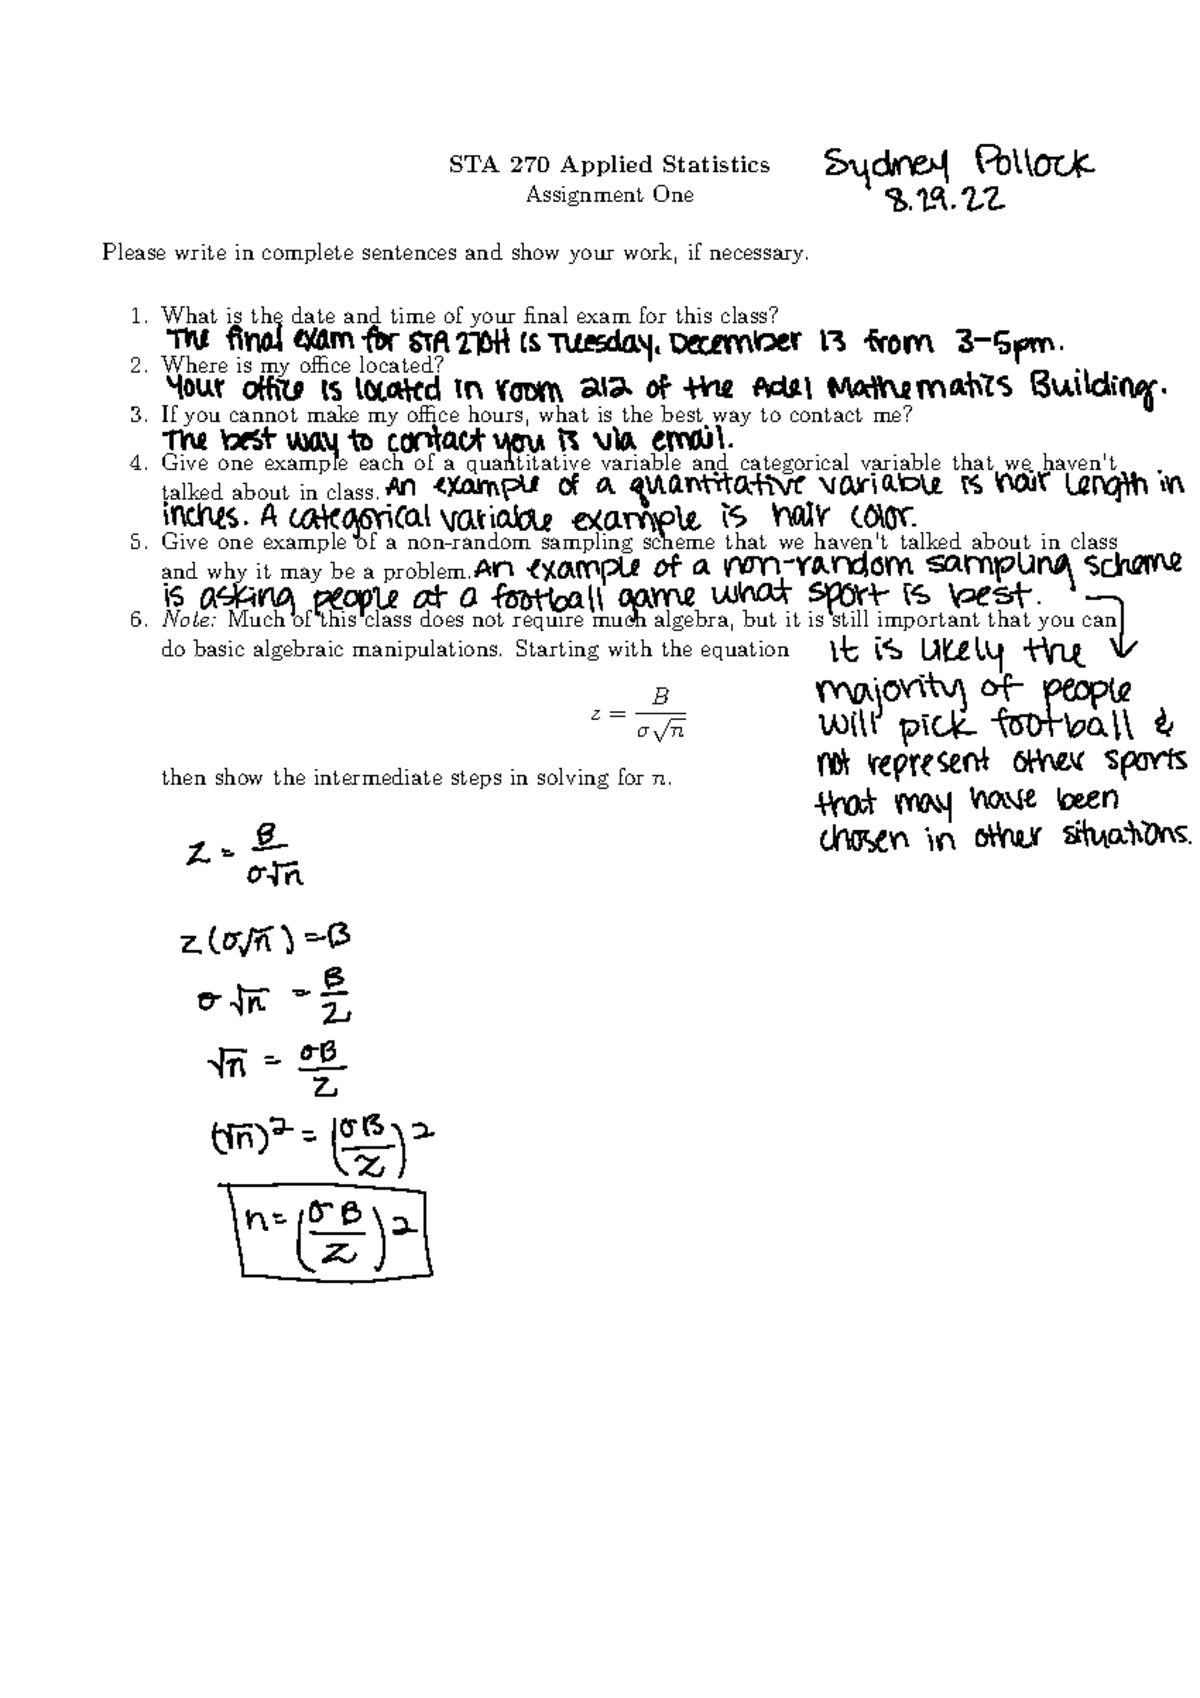 STA 270 Applied Statistics
Sydney Pollock
Assignment One
8.29.22
Please write in complete sentences and show your work, if necessary.
1. What is the date and time of your final exam for this class?
The final exam for STA 270H is Tuesday, December 13 from 3-5pm.
2. Where is my office located?
Your office is located in room 212 of the Adel Mathematics Building.
3. If you cannot make my office hours, what is the best way to contact me?
The best way to contact you is via email.
4. Give one example each of a quantitative variable and categorical variable that we haven't
talked about in class. An example of a quantitative variable is hair length in
inches. A categorical variable example is hair color.
5. Give one example of a non-random sampling scheme that we haven't talked about in class
and why it may be a problem. An example of a non-random sampling scheme
is asking people at a football game what sport is best.
6. Note: Much of this class does not require much algebra, but it is still important that you can
do basic algebraic manipulations. Starting with the equation
z = B / σ√n
then show the intermediate steps in solving for n.
it is likely the
majority of people
will pick football &
not represent other sports
that may have been
chosen in other situations.
z = B / σ√n
z(σ√n) = B
σ√n = B / z
√n = σB / z
(√n)² = (σB / z)²
n = (σB / z)²